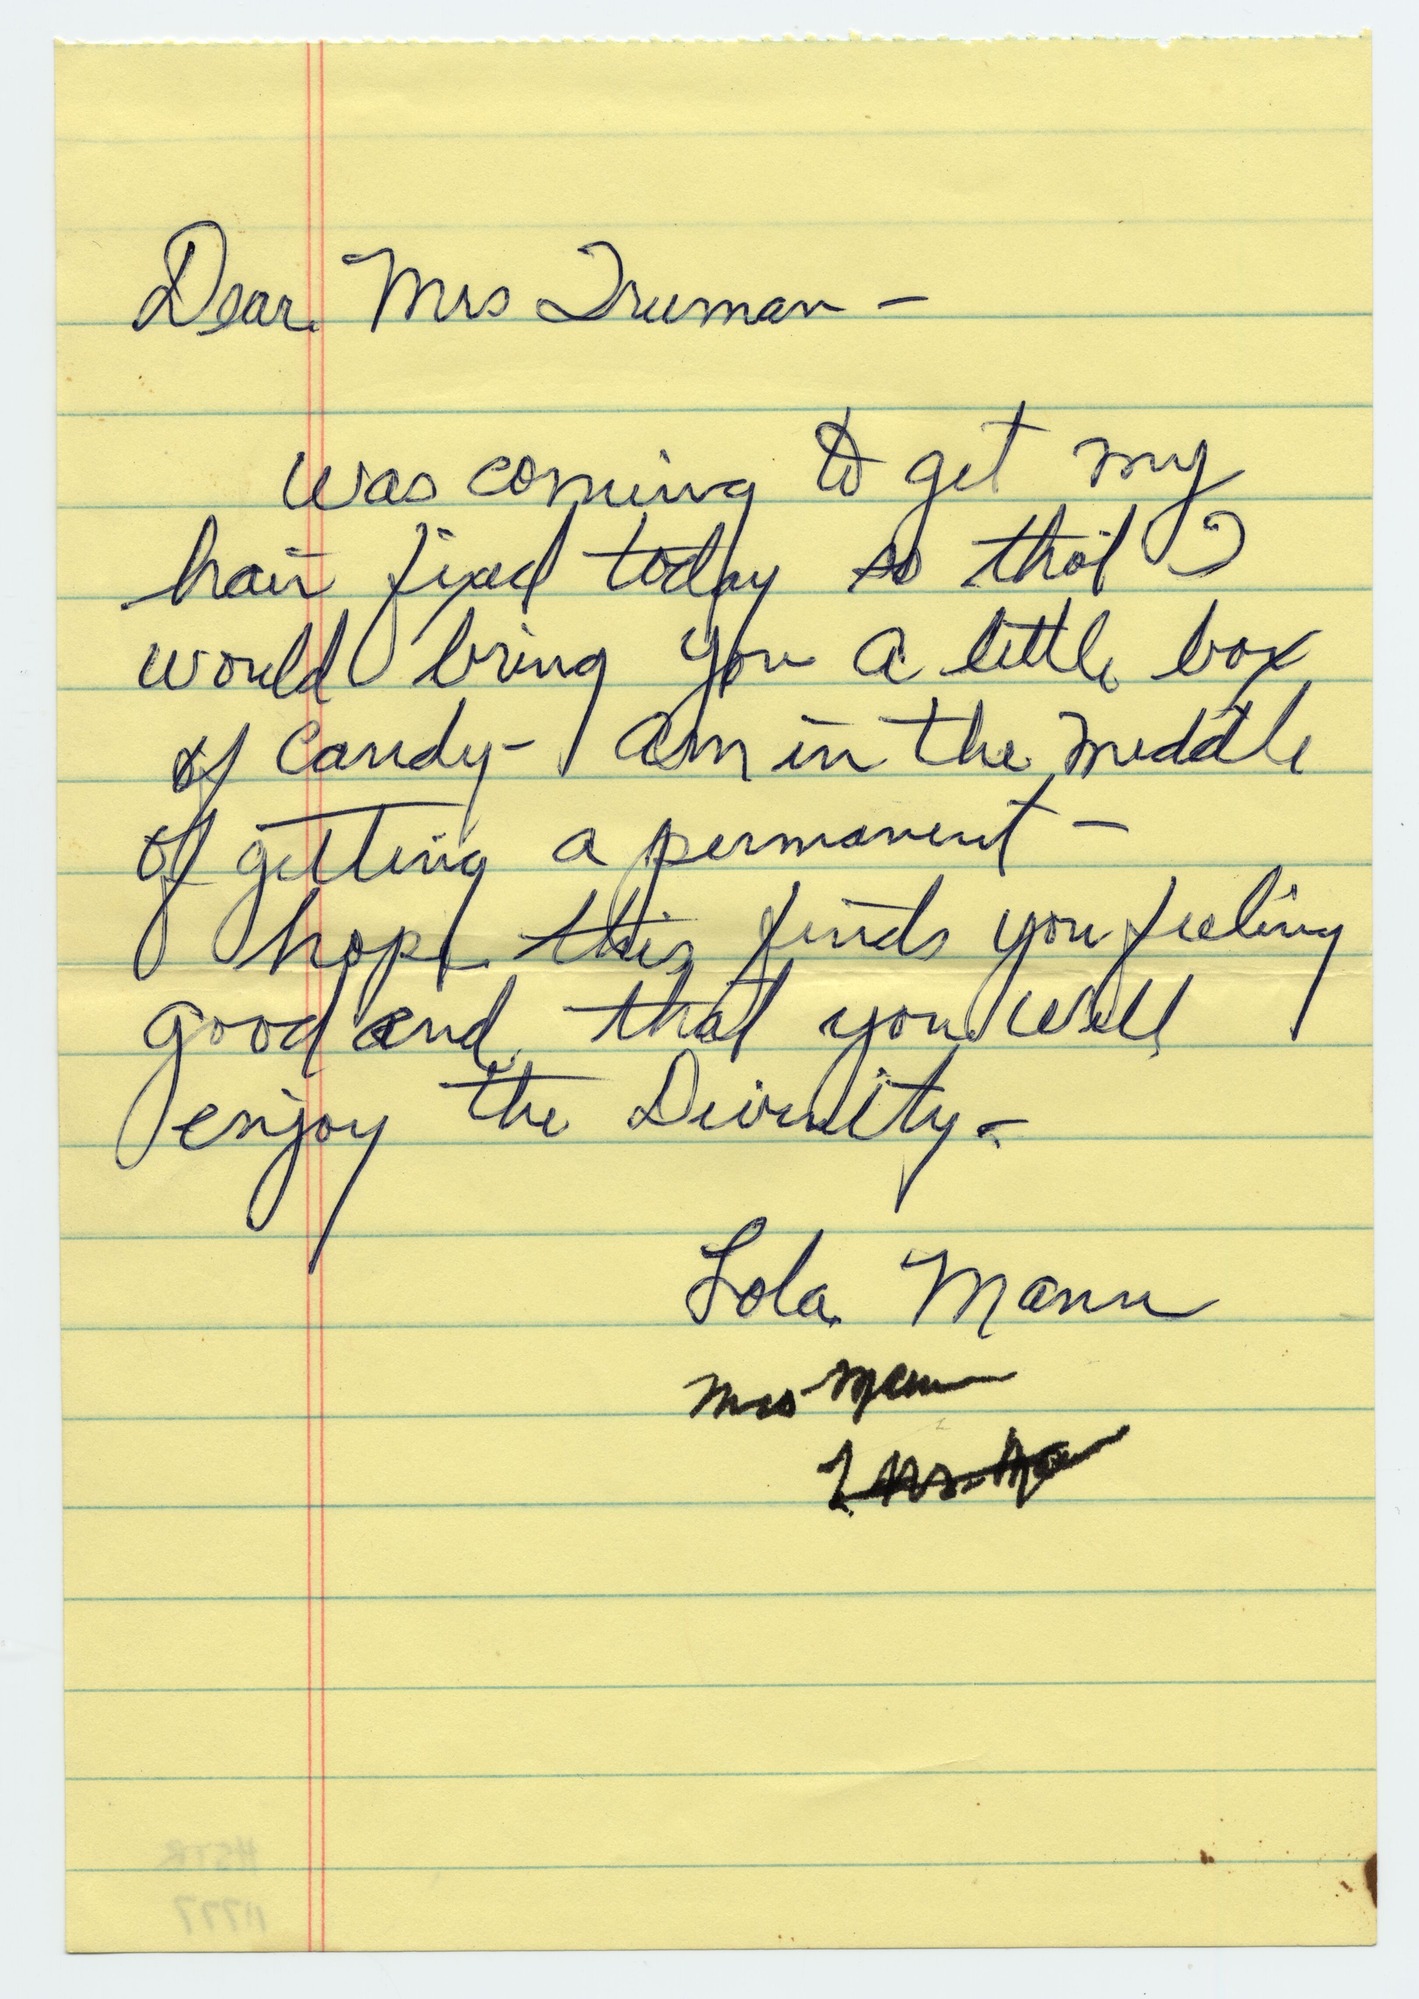 Dear Mrs Truman -
was coming to get my
hair fixed today so that I
would bring you a little box
of candy - Am in the middle
of getting a permanent -
hope this finds you feeling
good and that you will
enjoy the Divinity -
Lola Mann
Mrs Mann
HSTR
11777